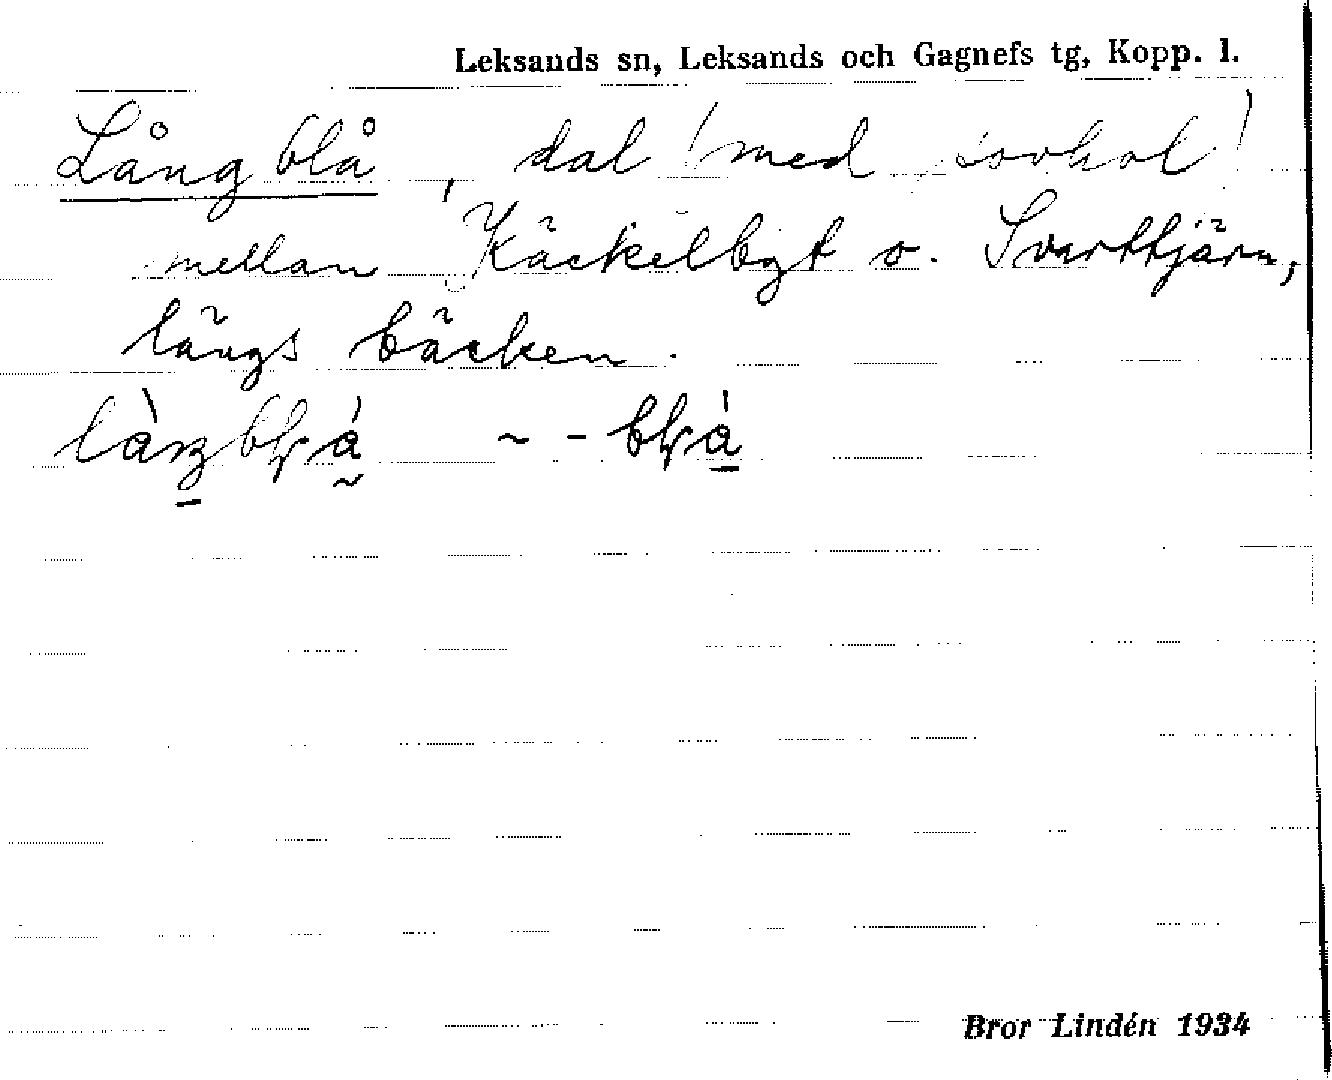 Leksands sn, Leksands och Gagnefs tg, Kopp. l.
Långblå, dal (med sovhol)
mellan Käckelbyt o. Svarttjärn,
längs bäcken.
Bror Lindén 1934